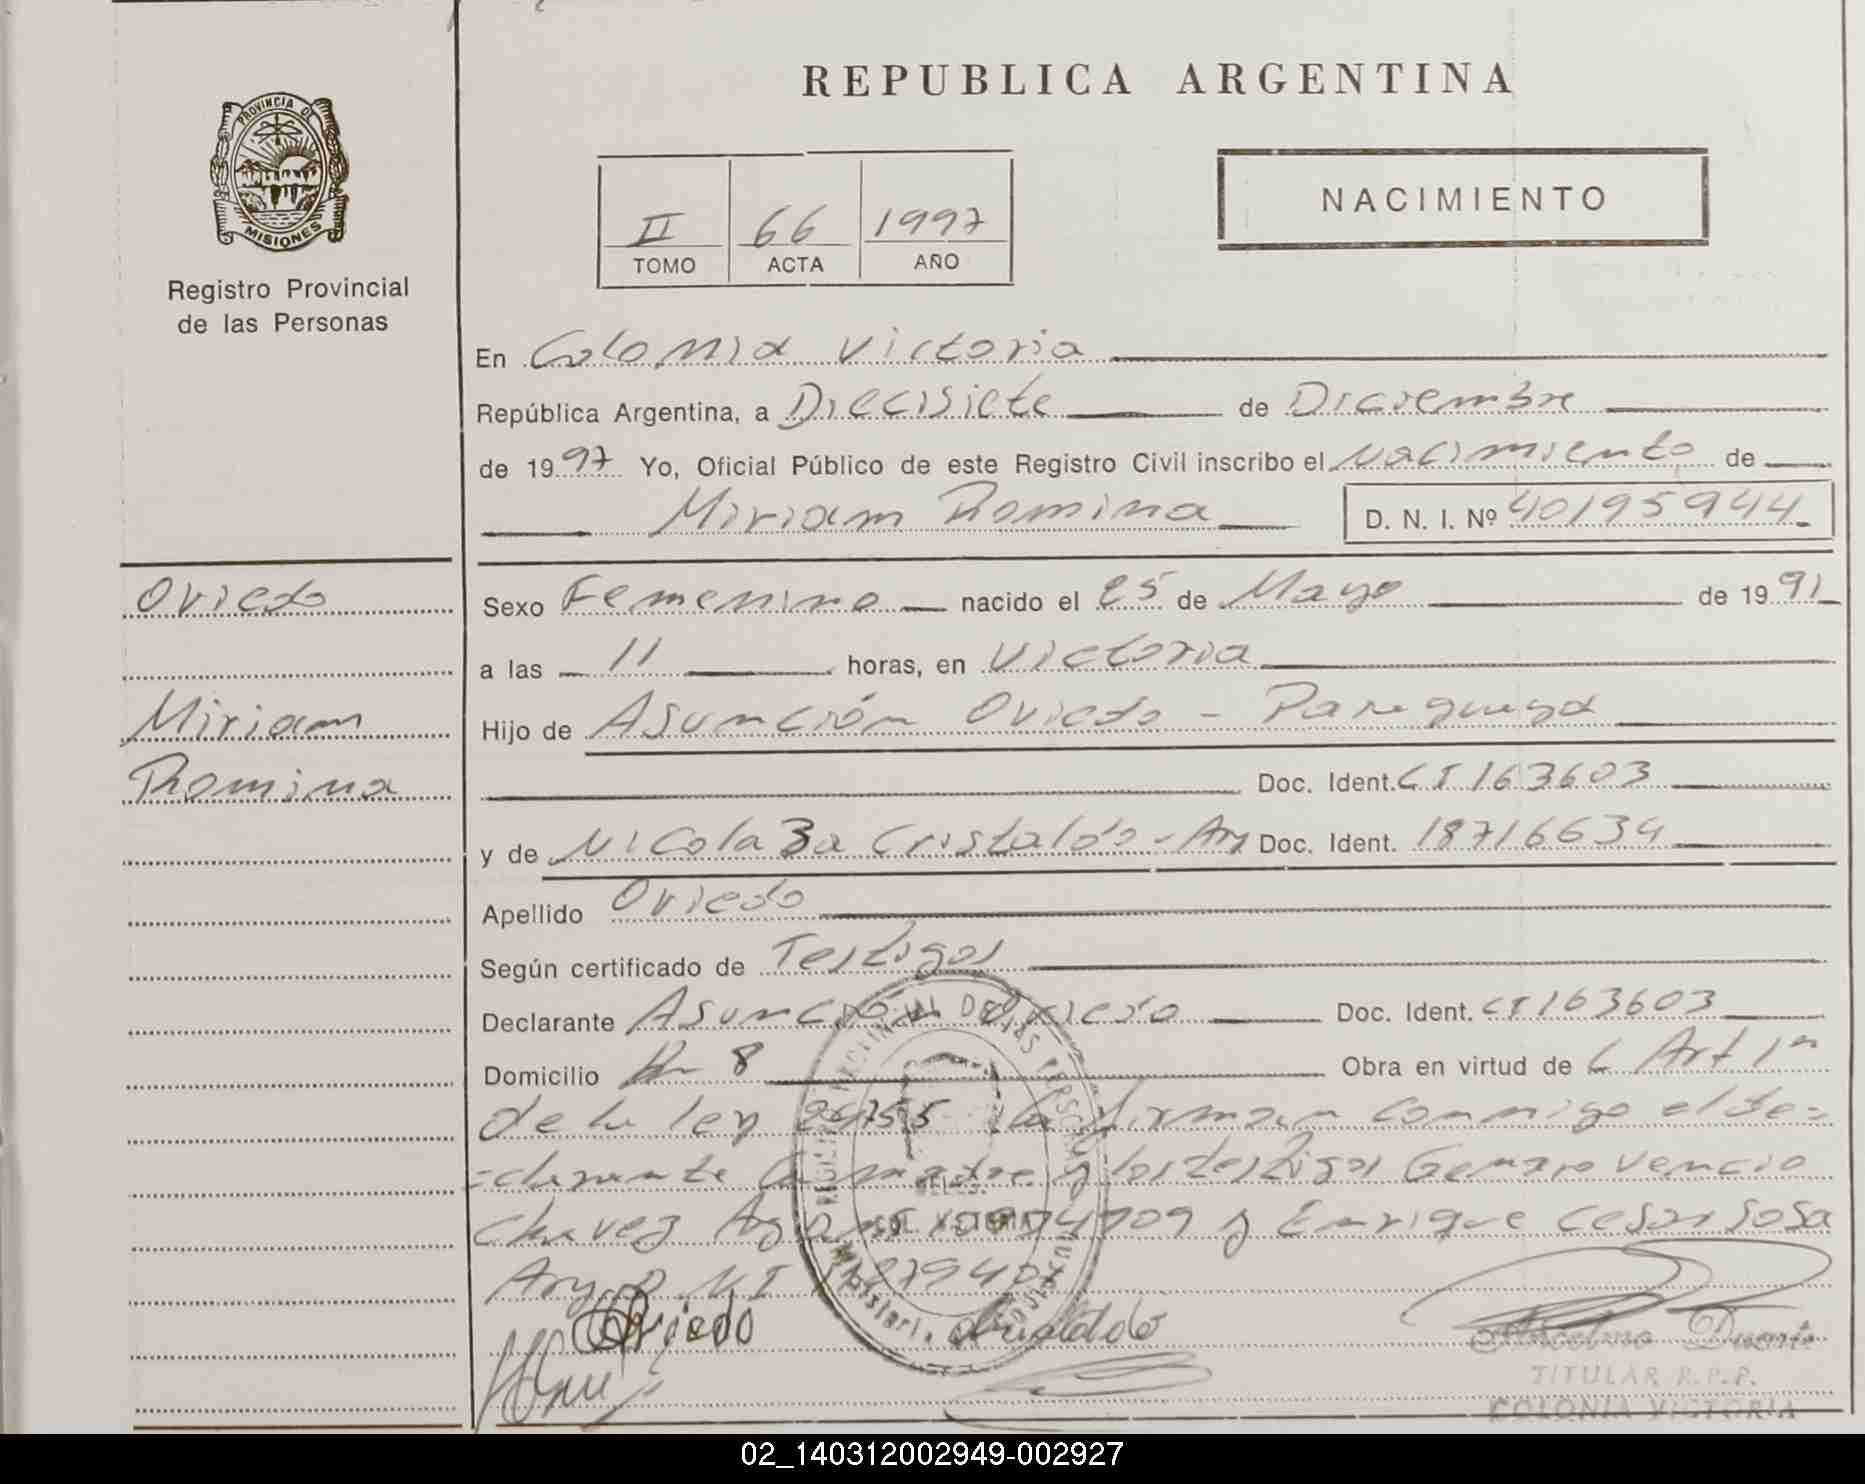 REPUBLICA ARGENTINA
PROVINCIA DE
MISIONES
Registro Provincial
de las Personas
II 66 1997
TOMO ACTA AÑO
NACIMIENTO
En Colonia Victoria
República Argentina, a Diecisiete de Diciembre
de 1997 Yo, Oficial Público de este Registro Civil inscribo el nacimiento de
Miriam Romina D. N. I. Nº 40195944
Oviedo
Miriam
Romina
Sexo Femenino nacido el 25 de Mayo de 1991
a las 11 horas, en Victoria
Hijo de Asunción Oviedo - Paraguaya
Doc. Ident. CI 163603
y de Nicolaza Cristaldo - Arg Doc. Ident. 18716634
Apellido Oviedo
Según certificado de Testigos
Declarante Asunción Oviedo Doc. Ident. CI 163603
Domicilio 8 Obra en virtud de Art 1º
de la ley 24755 firman conmigo el de=
=clarante la madre y los testigos Genaro Vencio
Chavez y Enrique Cesar Sosa
Arg D N I
Oviedo
Duarte
TITULAR R.P.P.
COLONIA VICTORIA
02_140312002949-002927